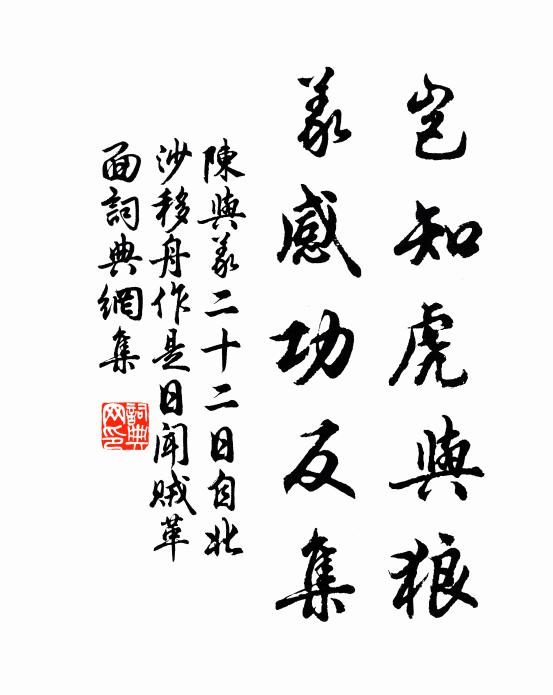 豈知虎與狼
義感功反集
陳與義二十二日自北
沙移舟作是日聞賊革
面詞典網集
詞典
网印